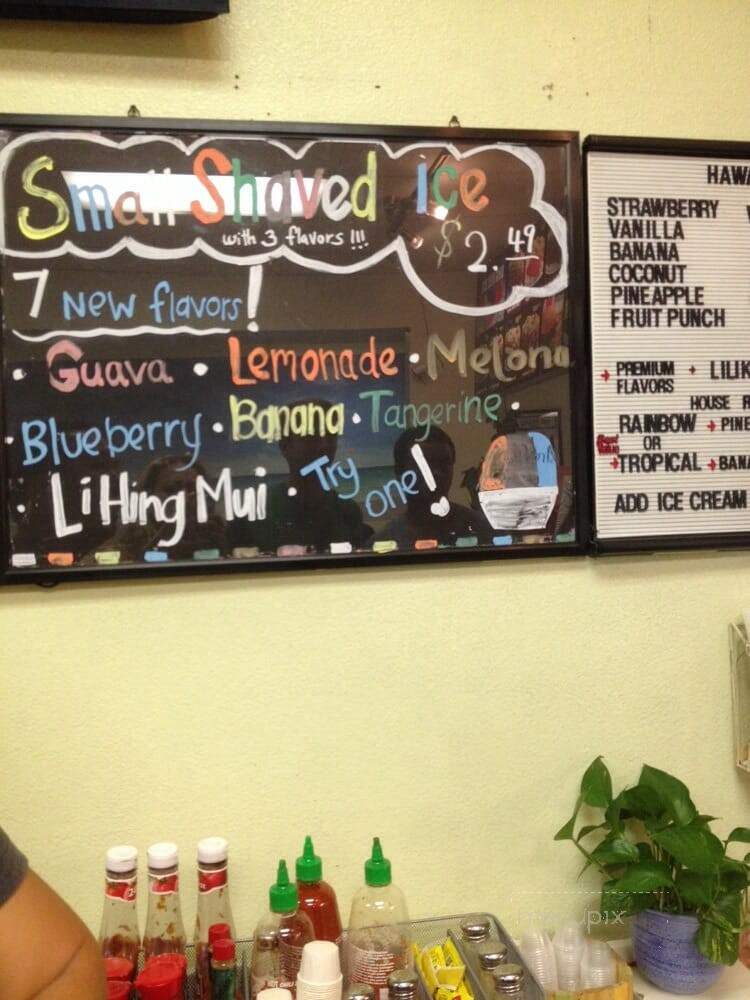 Small Shaved ice
with 3 flavors !!!
$2.49
7 New flavors!
Guava • Lemonade • Melona
• Blueberry • Banana • Tangerine •
• Li Hing Mui • Try one!
HAWA
STRAWBERRY
VANILLA
BANANA
COCONUT
PINEAPPLE
FRUIT PUNCH
PREMIUM FLAVORS LILIK
HOUSE F
RAINBOW PINE
OR
TROPICAL BANA
ADD ICE CREAM